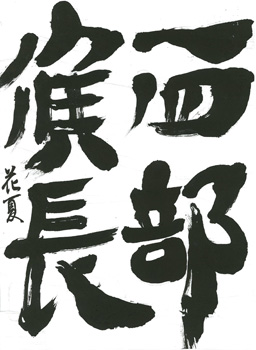 西部
候長
花夏